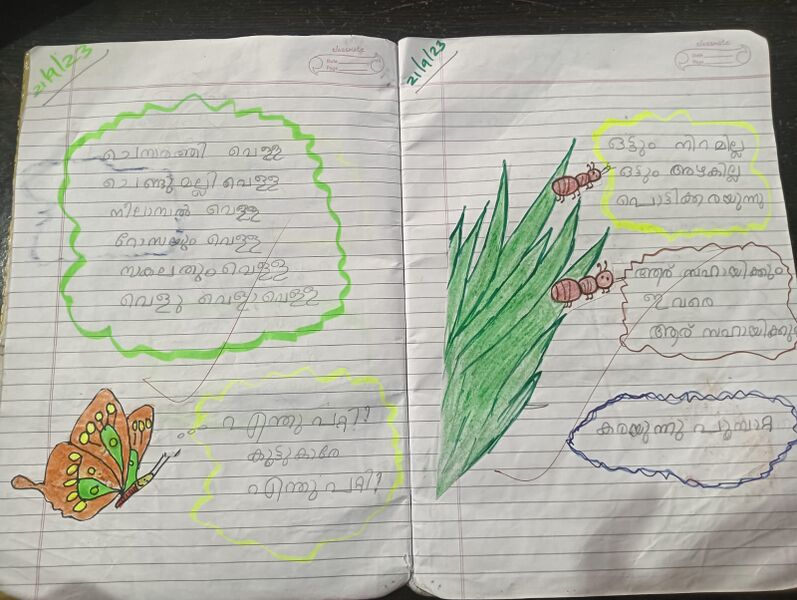 21/9/23
classmate
Date
Page
ചെമ്പരത്തി വെള്ള
ചെണ്ടുമല്ലി വെള്ള
നീലാമ്പൽ വെള്ള
റോസയും വെള്ള
സകലതും വെള്ള
വെളു വെളാ വെള്ള
എന്തു പറ്റി?
കൂട്ടുകാരേ
എന്തു പറ്റി?
21/9/23
classmate
Date
Page
ഒട്ടും നിറമില്ല
ഒട്ടും അഴകില്ല
പൊട്ടിക്കരയുന്നു
ആര് സഹായിക്കും
ഇവരെ
ആര് സഹായിക്കും
കരയുന്നു പൂമ്പാറ്റ